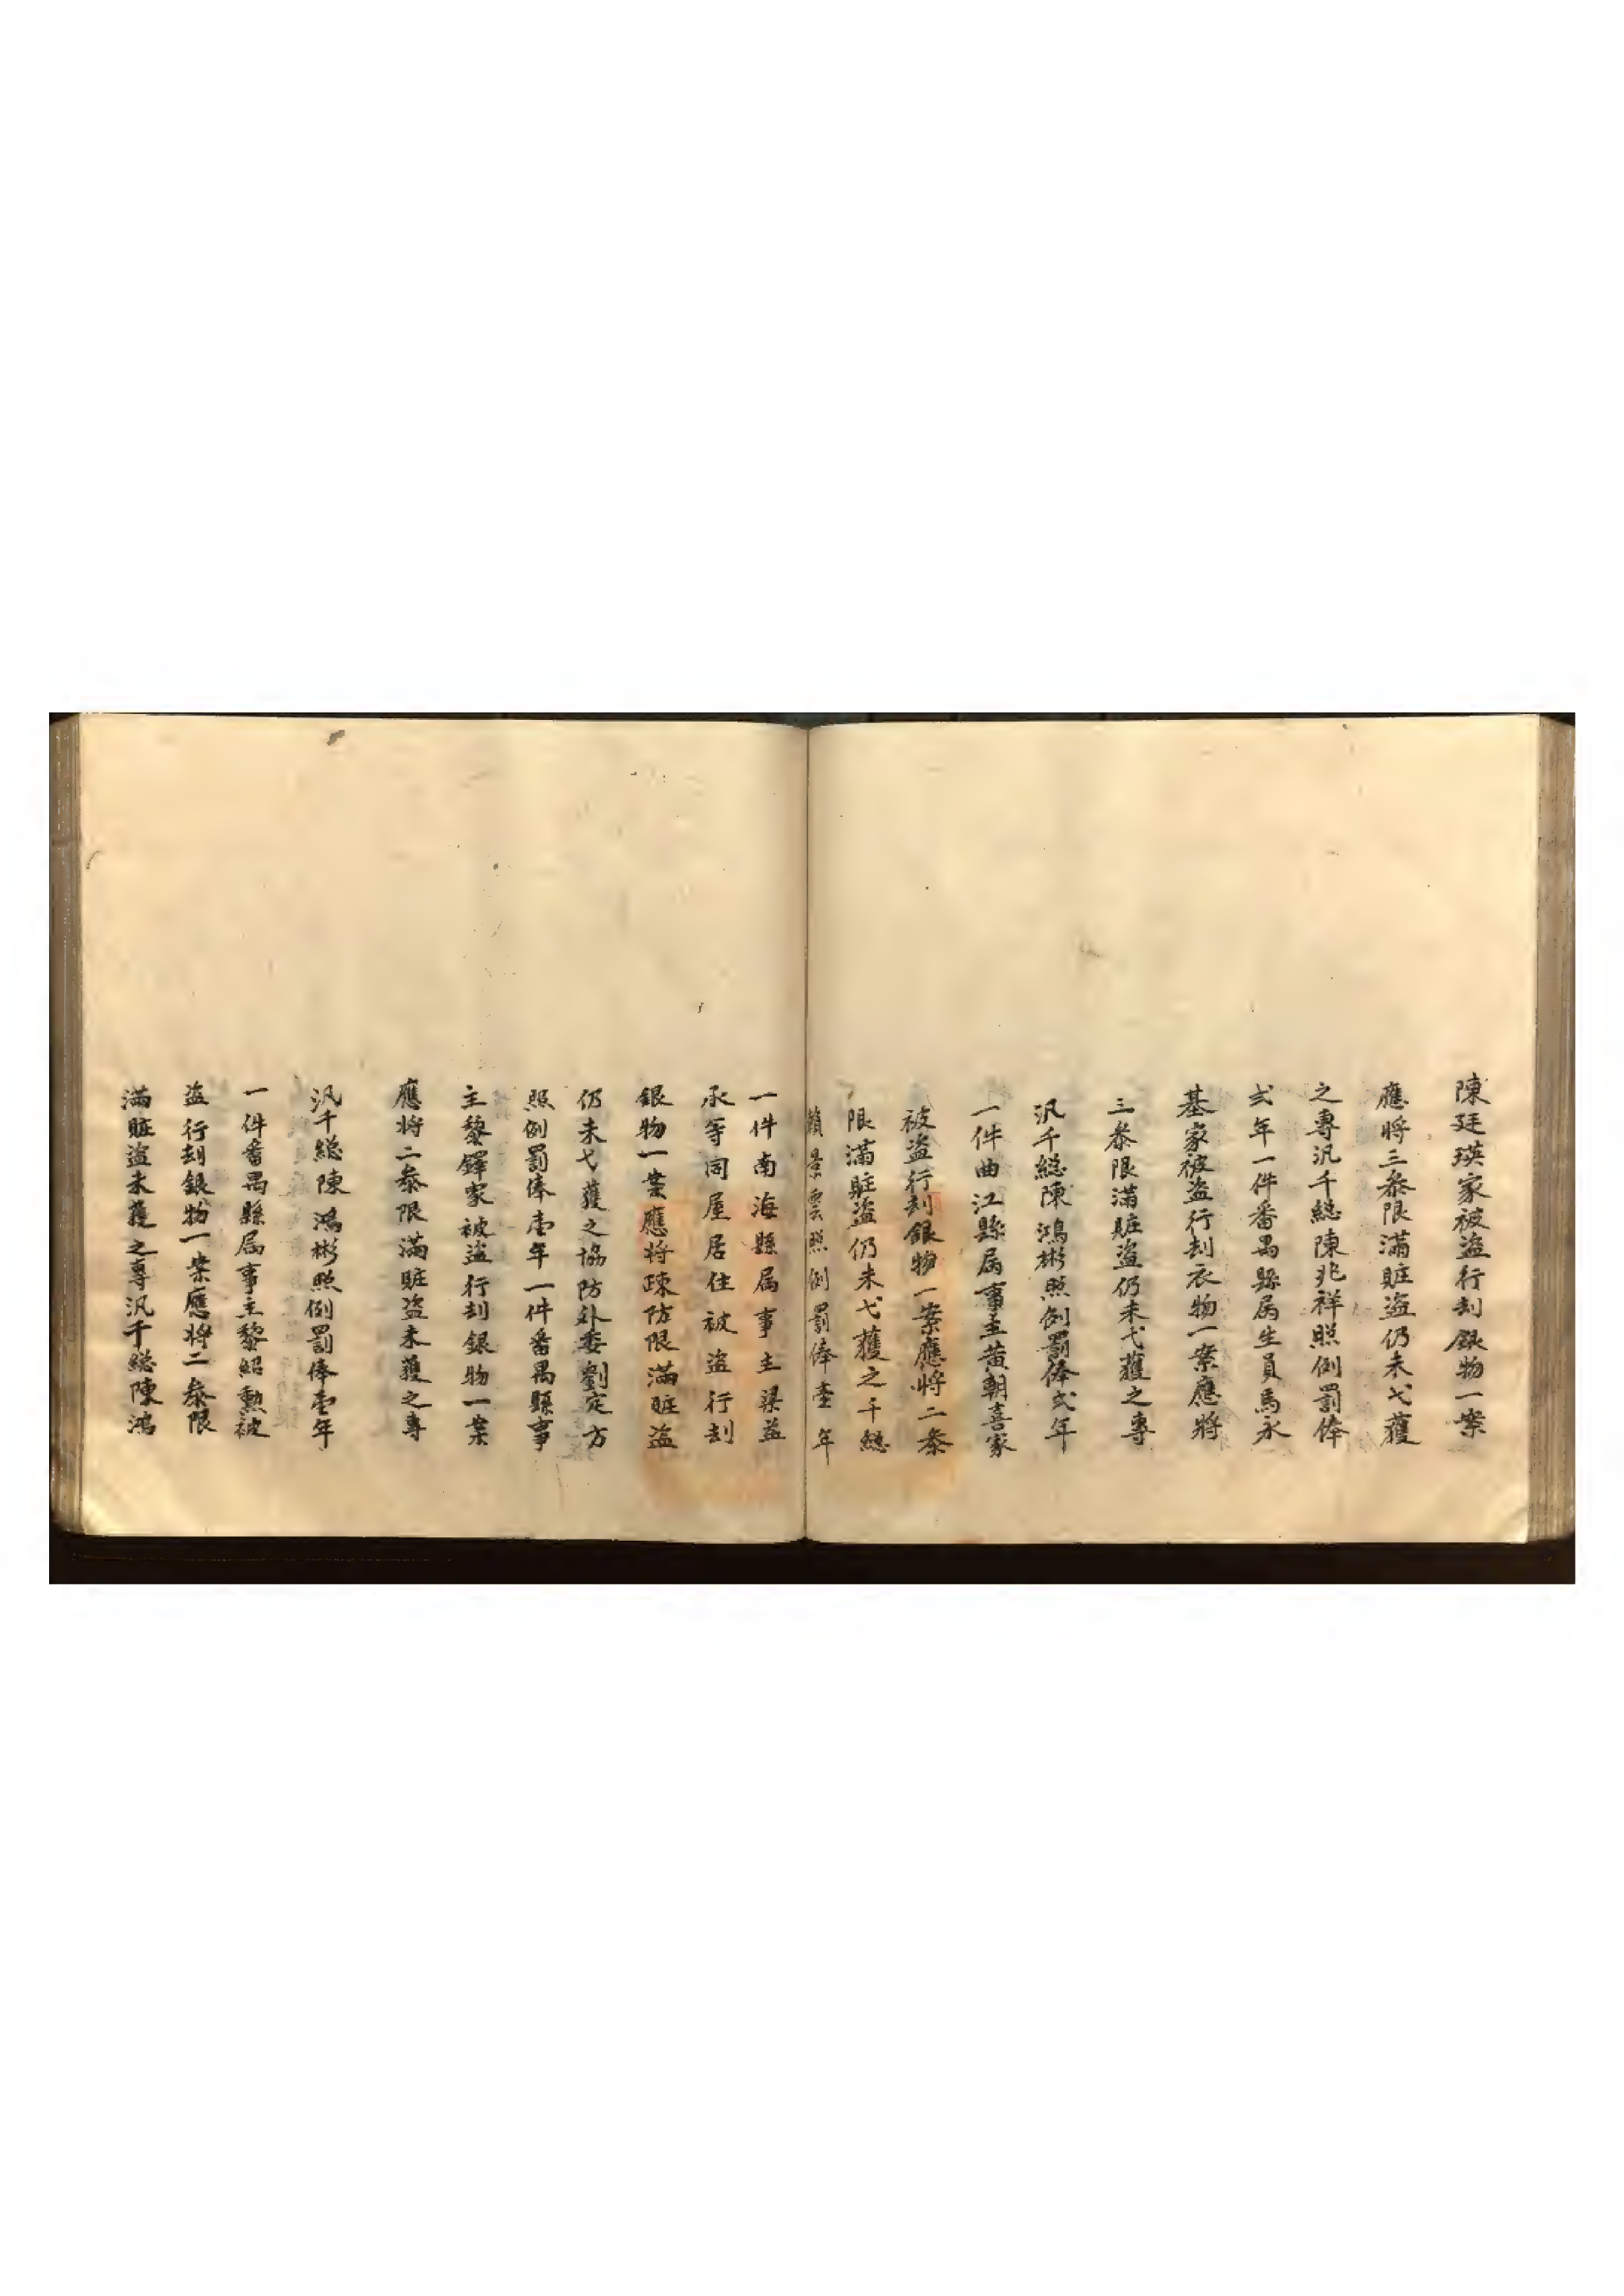 陳廷瑛家被盜行刦銀物一案
應將三叅限滿賍盜仍未弋獲
之專汛千総陳兆祥照例罰俸
弍年一件番禺縣属生員馬永
基家被盜行刦衣物一案應將
三叅限滿賍盜仍未弋獲之專
汛千総陳鴻彬照例罰俸弍年
一件曲江縣属事主黄朝喜家
被盜行刦銀物一案應將二叅
限滿賍盜仍未弋獲之千総
賴景雲照例罰俸壹年
一件南海縣属事主梁益
承等同屋居住被盜行刦
銀物一案應将疎防限滿賍盜
仍未弋獲之協防外委劉定方
照例罰俸壱年一件番禺縣事
主黎鐸家被盜行刦銀物一案
應将二叅限滿賍盜未獲之專
汛千総陳鴻彬照例罰俸壱年
一件番禺縣属事主黎紹勳被
盜行刦銀物一案應將二叅限
滿賍盜未獲之專汛千総陳鴻